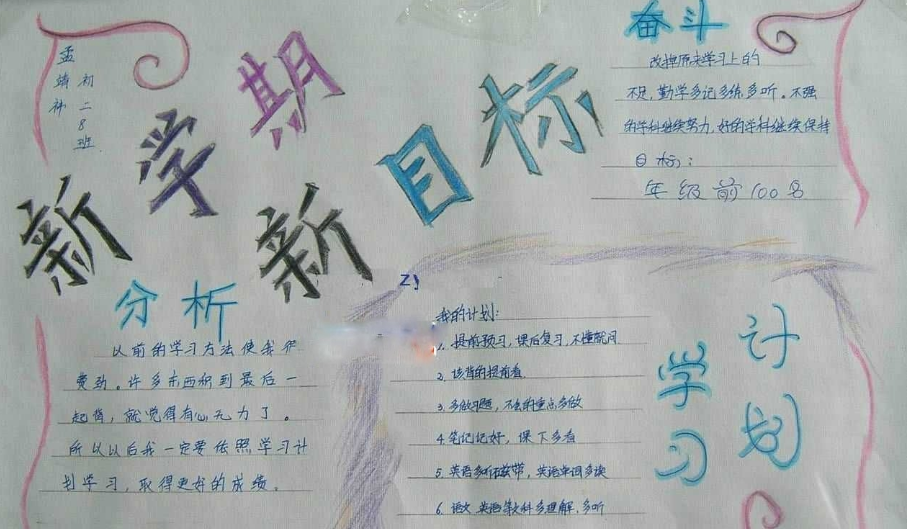 初二8班
新学期
新目标
奋斗
改掉原来学习上的
不足,勤学多记多练多听。不强
的学科继续努力,好的学科继续保持
目标:
年级前100名
分析
以前的学习方法使我很
费劲。许多东西积到最后一
起背,就觉得有心无力了。
所以以后我一定要依照学习计
划学习,取得更好的成绩。
我的计划:
1. 提前预习,课后复习,不懂就问
2. 该背的提前背
3. 多做习题,不会的重点多做
4. 笔记记好,课下多看
5. 英语多听磁带,英语单词多读
6. 语文 英语等文科多理解,多听
学习
计划